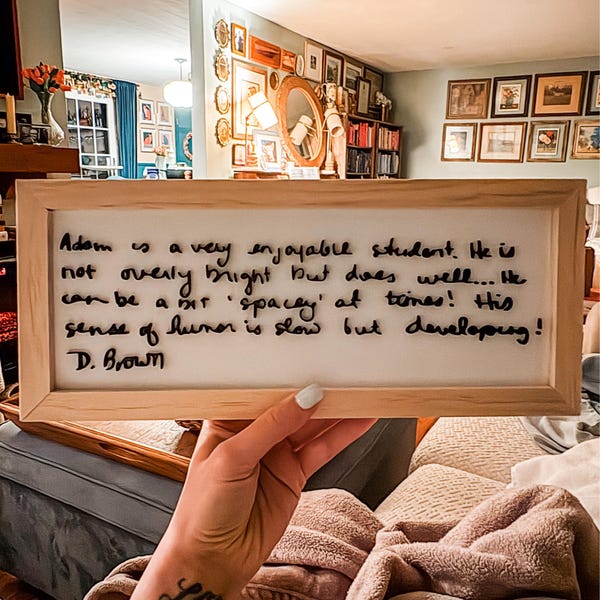 Adam is a very enjoyable student. He is
not overly bright but does well... He
can be a bit 'spacey' at times! His
sense of humor is slow but developing!
D. Brown